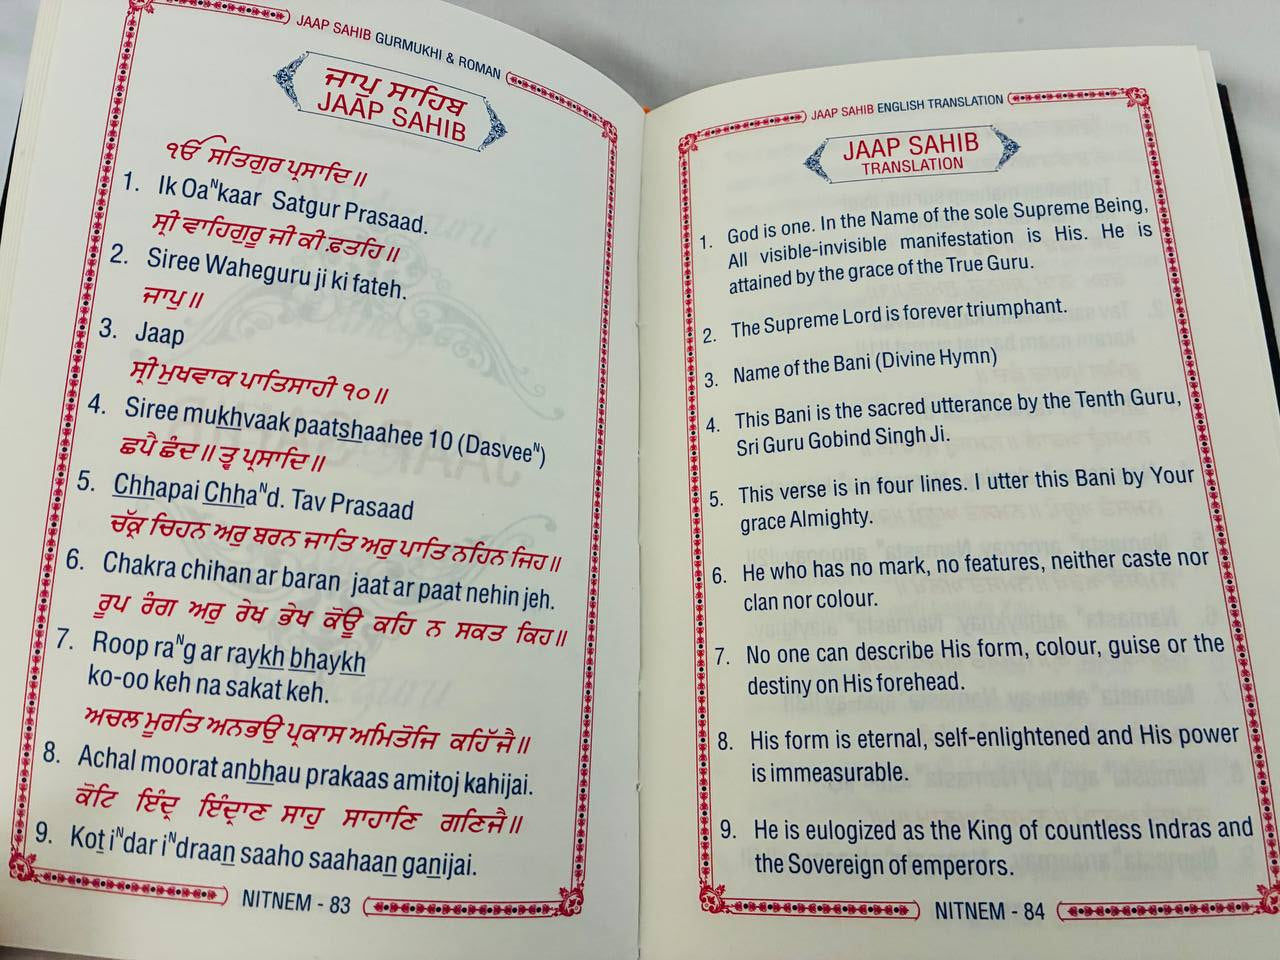 JAAP SAHIB GURMUKHI & ROMAN
ਜਾਪੁ ਸਾਹਿਬ
JAAP SAHIB
ੴ ਸਤਿਗੁਰ ਪ੍ਰਸਾਦਿ॥
1. Ik Oaᴺkaar Satgur Prasaad.
ਸ੍ਰੀ ਵਾਹਿਗੁਰੂ ਜੀ ਕੀ ਫ਼ਤਹਿ॥
2. Siree Waheguru ji ki fateh.
ਜਾਪੁ॥
3. Jaap
ਸ੍ਰੀ ਮੁਖਵਾਕ ਪਾਤਿਸਾਹੀ ੧੦॥
4. Siree mukhvaak paatshaahee 10 (Dasveeᴺ)
ਛਪੈ ਛੰਦ॥ ਤ੍ਵ ਪ੍ਰਸਾਦਿ॥
5. Chhapai Chhaᴺd. Tav Prasaad
ਚੱਕ੍ਰ ਚਿਹਨ ਅਰੁ ਬਰਨ ਜਾਤਿ ਅਰੁ ਪਾਤਿ ਨਹਿਨ ਜਿਹ॥
6. Chakra chihan ar baran jaat ar paat nehin jeh.
ਰੂਪ ਰੰਗ ਅਰੁ ਰੇਖ ਭੇਖ ਕੋਊ ਕਹਿ ਨ ਸਕਤ ਕਿਹ॥
7. Roop raᴺg ar raykh bhaykh
ko-oo keh na sakat keh.
ਅਚਲ ਮੂਰਤਿ ਅਨਭਉ ਪ੍ਰਕਾਸ ਅਮਿਤੋਜਿ ਕਹਿੱਜੈ॥
8. Achal moorat anbhau prakaas amitoj kahijai.
ਕੋਟਿ ਇੰਦ੍ਰ ਇੰਦ੍ਰਾਣ ਸਾਹੁ ਸਾਹਾਣਿ ਗਣਿਜੈ॥
9. Kot iᴺdar iᴺdraan saaho saahaan ganijai.
NITNEM - 83
JAAP SAHIB ENGLISH TRANSLATION
JAAP SAHIB
TRANSLATION
1. God is one. In the Name of the sole Supreme Being,
All visible-invisible manifestation is His. He is
attained by the grace of the True Guru.
2. The Supreme Lord is forever triumphant.
3. Name of the Bani (Divine Hymn)
4. This Bani is the sacred utterance by the Tenth Guru,
Sri Guru Gobind Singh Ji.
5. This verse is in four lines. I utter this Bani by Your
grace Almighty.
6. He who has no mark, no features, neither caste nor
clan nor colour.
7. No one can describe His form, colour, guise or the
destiny on His forehead.
8. His form is eternal, self-enlightened and His power
is immeasurable.
9. He is eulogized as the King of countless Indras and
the Sovereign of emperors.
NITNEM - 84